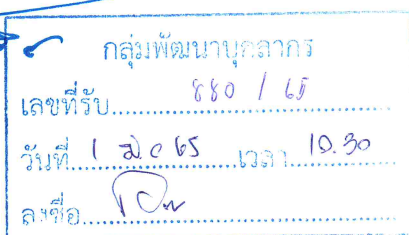 กลุ่มพัฒนาบุคลากร
เลขที่รับ 880 / 65
วันที่ 1 มิ.ย 65 เวลา 10.30
ลงชื่อ